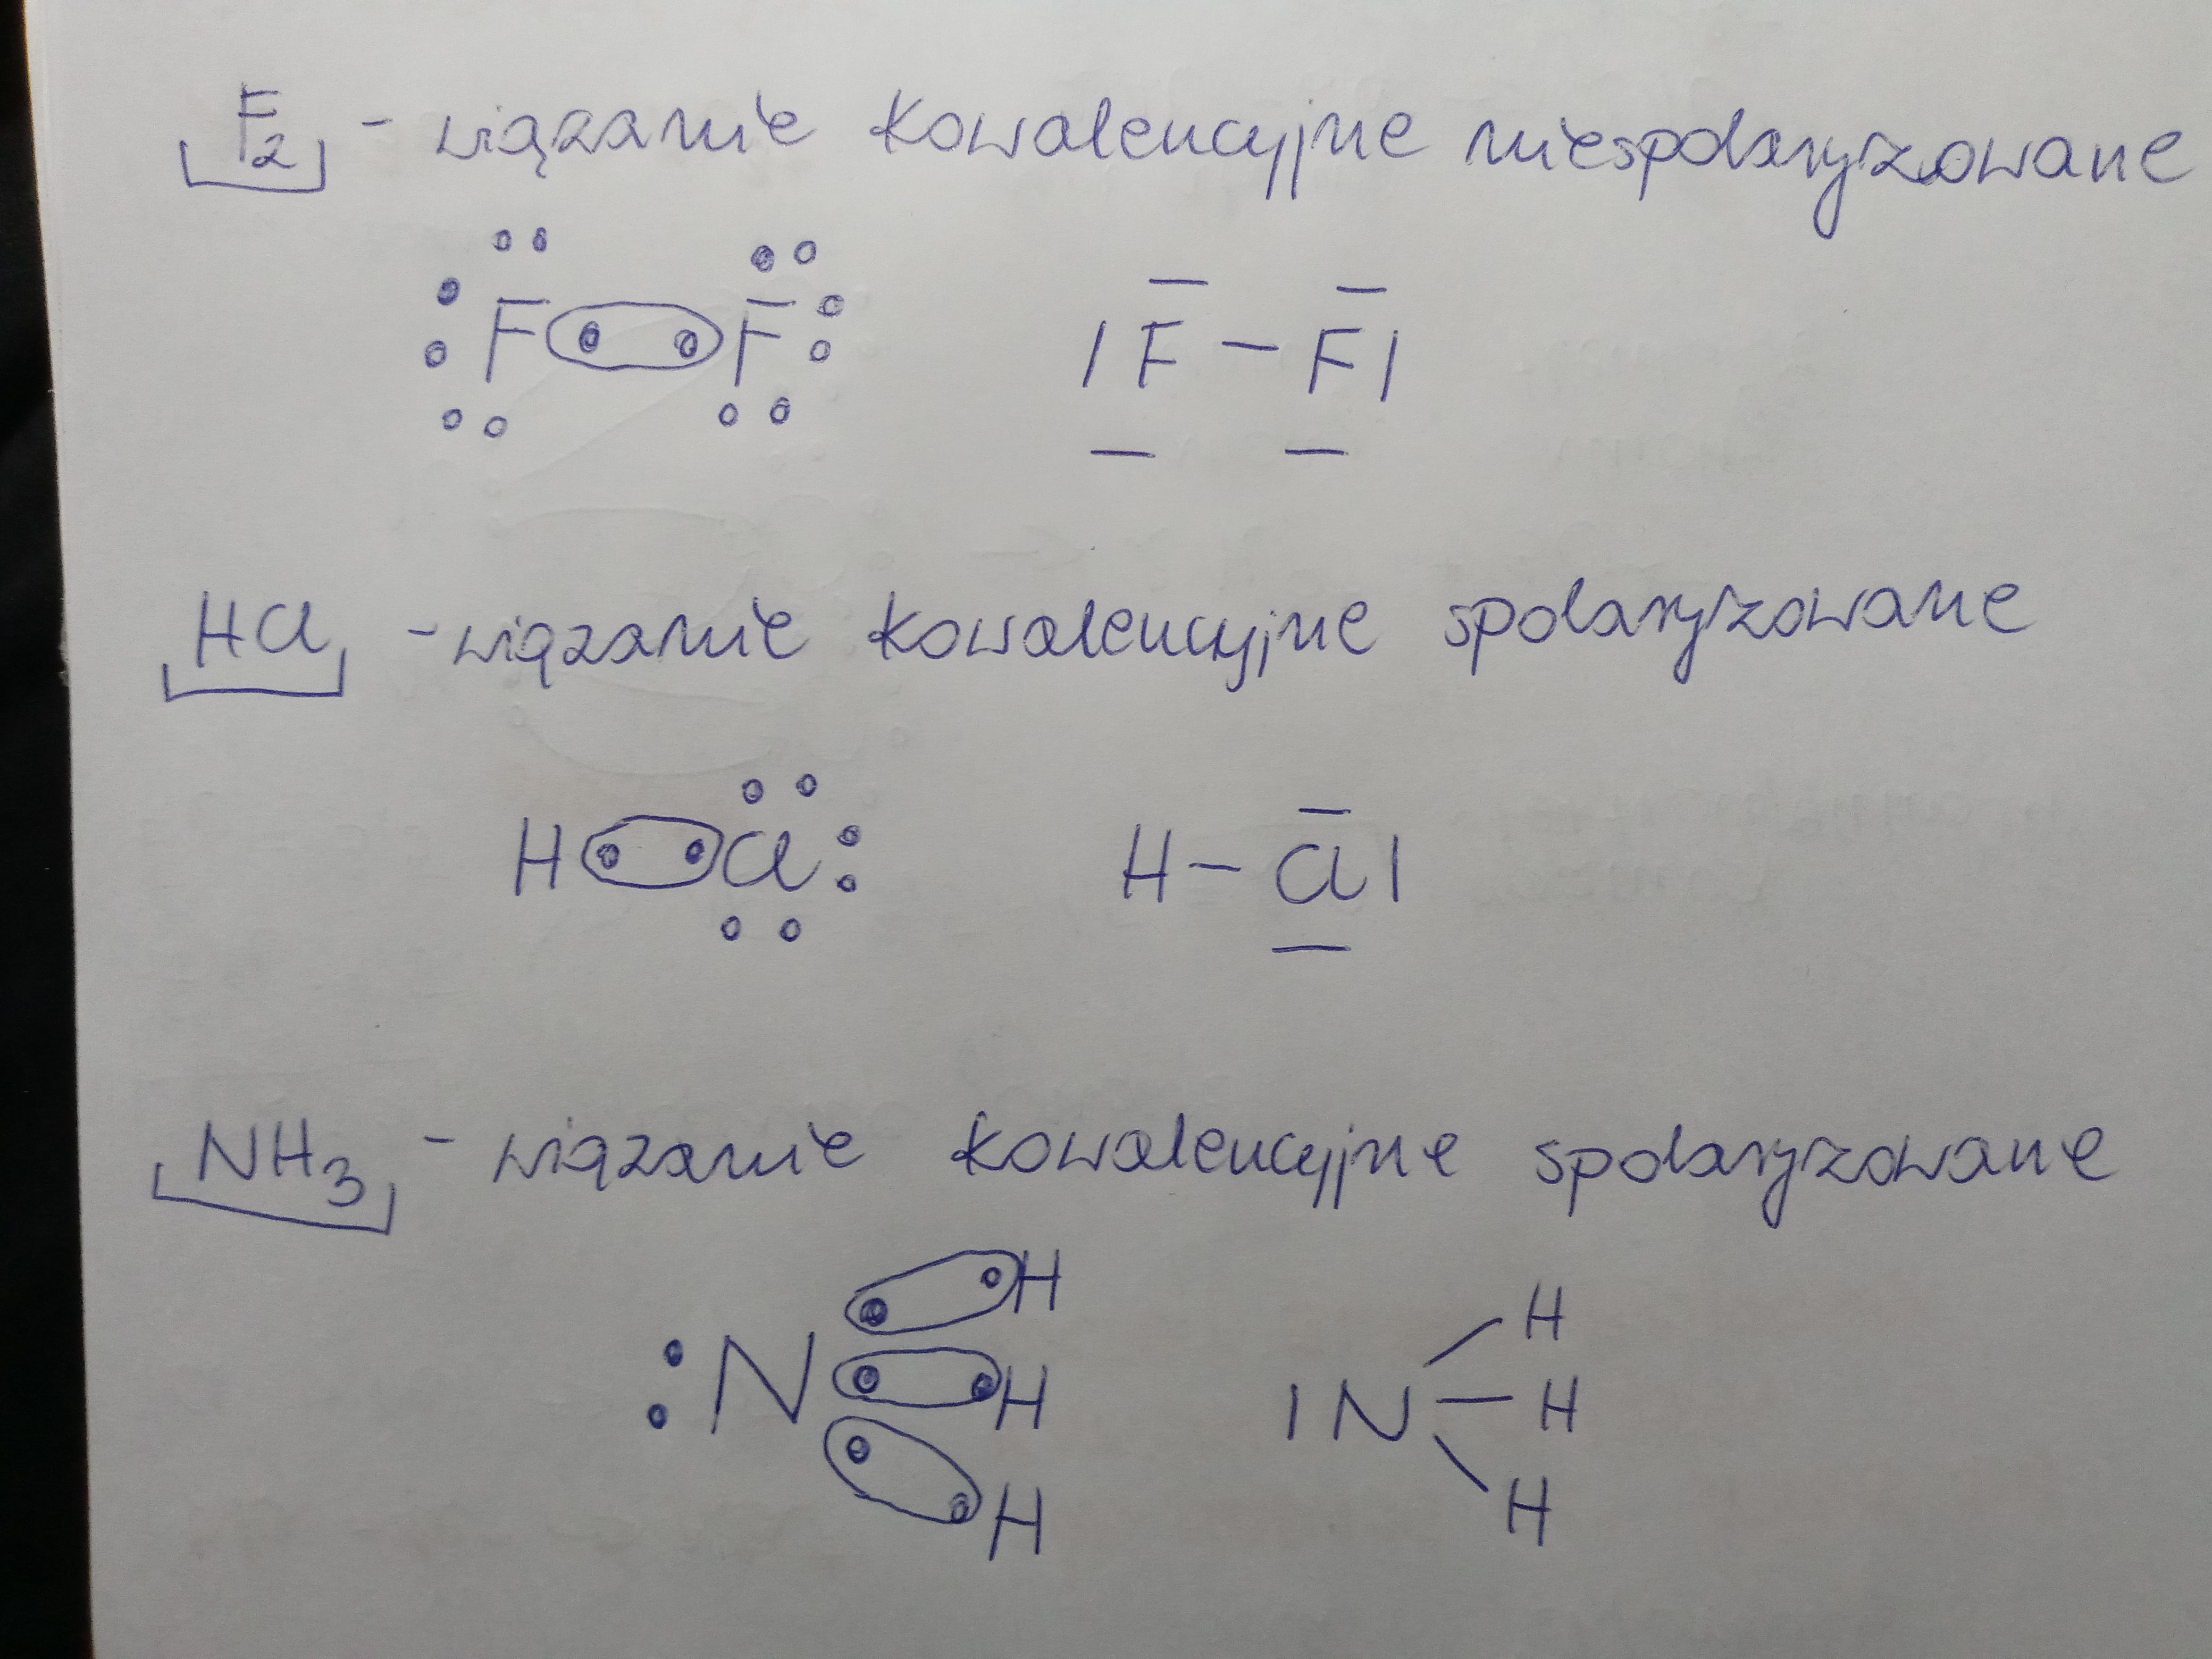 F₂ - wiązanie kowalencyjne niespolaryzowane
F F |F-F|
HCl - wiązanie kowalencyjne spolaryzowane
H Cl H-Cl|
NH₃ - wiązanie kowalencyjne spolaryzowane
H H
N H |N-H
H H